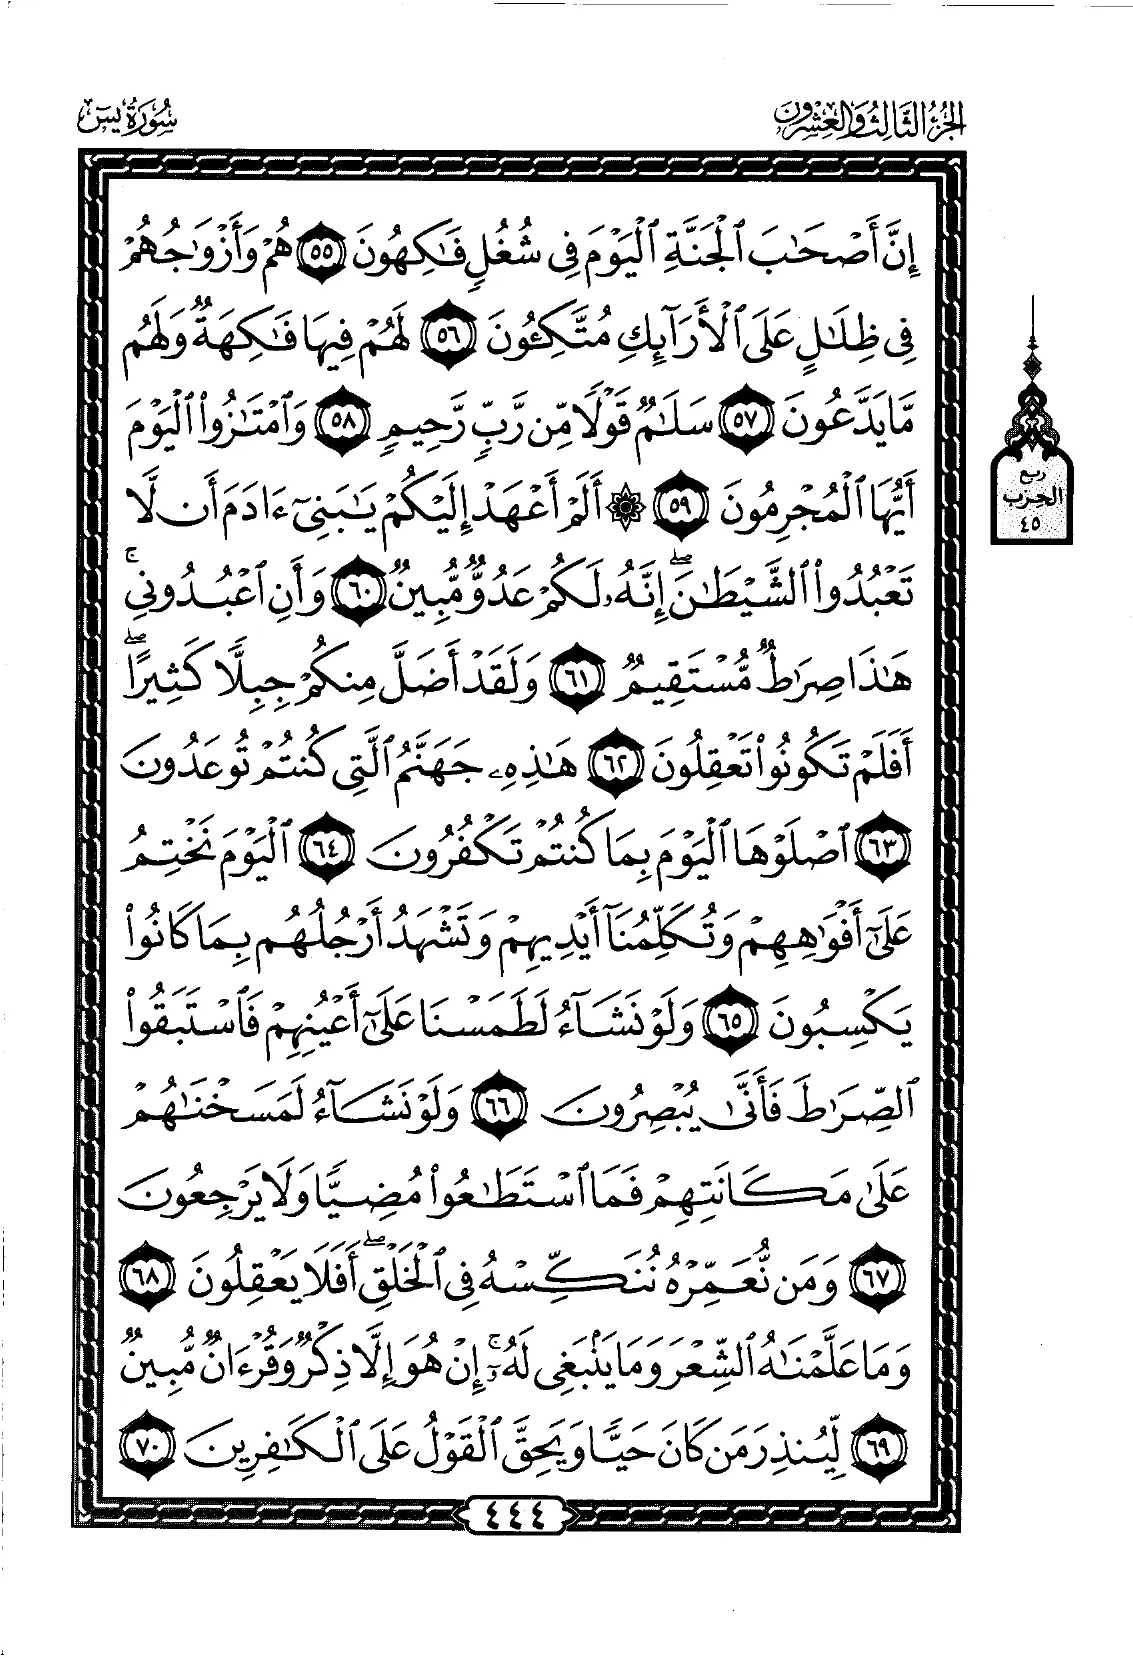 الجزء الثالث والعشرون
سورة يس
إِنَّ أَصْحَٰبَ ٱلْجَنَّةِ ٱلْيَوْمَ فِى شُغُلٍ فَٰكِهُونَ ٥٥ هُمْ وَأَزْوَٰجُهُمْ
فِى ظِلَٰلٍ عَلَى ٱلْأَرَآئِكِ مُتَّكِـُٔونَ ٥٦ لَهُمْ فِيهَا فَٰكِهَةٌ وَلَهُم
مَّا يَدَّعُونَ ٥٧ سَلَٰمٌ قَوْلًا مِّن رَّبٍّ رَّحِيمٍ ٥٨ وَٱمْتَٰزُوا۟ ٱلْيَوْمَ
أَيُّهَا ٱلْمُجْرِمُونَ ٥٩ ۞ أَلَمْ أَعْهَدْ إِلَيْكُمْ يَٰبَنِىٓ ءَادَمَ أَن لَّا
تَعْبُدُوا۟ ٱلشَّيْطَٰنَ ۖ إِنَّهُۥ لَكُمْ عَدُوٌّ مُّبِينٌ ٦٠ وَأَنِ ٱعْبُدُونِى ۚ
هَٰذَا صِرَٰطٌ مُّسْتَقِيمٌ ٦١ وَلَقَدْ أَضَلَّ مِنكُمْ جِبِلًّا كَثِيرًا ۖ
أَفَلَمْ تَكُونُوا۟ تَعْقِلُونَ ٦٢ هَٰذِهِۦ جَهَنَّمُ ٱلَّتِى كُنتُمْ تُوعَدُونَ
٦٣ ٱصْلَوْهَا ٱلْيَوْمَ بِمَا كُنتُمْ تَكْفُرُونَ ٦٤ ٱلْيَوْمَ نَخْتِمُ
عَلَىٰٓ أَفْوَٰهِهِمْ وَتُكَلِّمُنَآ أَيْدِيهِمْ وَتَشْهَدُ أَرْجُلُهُم بِمَا كَانُوا۟
يَكْسِبُونَ ٦٥ وَلَوْ نَشَآءُ لَطَمَسْنَا عَلَىٰٓ أَعْيُنِهِمْ فَٱسْتَبَقُوا۟
ٱلصِّرَٰطَ فَأَنَّىٰ يُبْصِرُونَ ٦٦ وَلَوْ نَشَآءُ لَمَسَخْنَٰهُمْ
عَلَىٰ مَكَانَتِهِمْ فَمَا ٱسْتَطَٰعُوا۟ مُضِيًّا وَلَا يَرْجِعُونَ
٦٧ وَمَن نُّعَمِّرْهُ نُنَكِّسْهُ فِى ٱلْخَلْقِ ۖ أَفَلَا يَعْقِلُونَ ٦٨
وَمَا عَلَّمْنَٰهُ ٱلشِّعْرَ وَمَا يَنۢبَغِى لَهُۥٓ ۚ إِنْ هُوَ إِلَّا ذِكْرٌ وَقُرْءَانٌ مُّبِينٌ
٦٩ لِّيُنذِرَ مَن كَانَ حَيًّا وَيَحِقَّ ٱلْقَوْلُ عَلَى ٱلْكَٰفِرِينَ ٧٠
٤٤٤
ربع
الحزب
٤٥